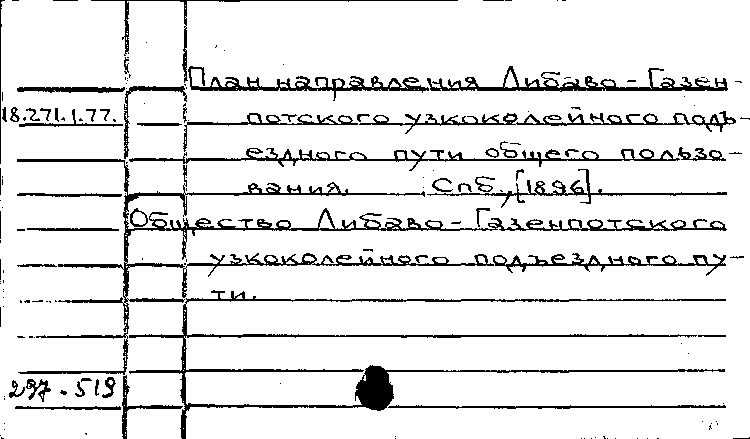 План направления Либаво-Газен-
18.271.1.77. потского узкоколейного подъ-
ездного пути общего пользо-
вания. Спб., [1896].
Общество Либаво-Газенпотского
узкоколейного подъездного пу-
ти.
297.519